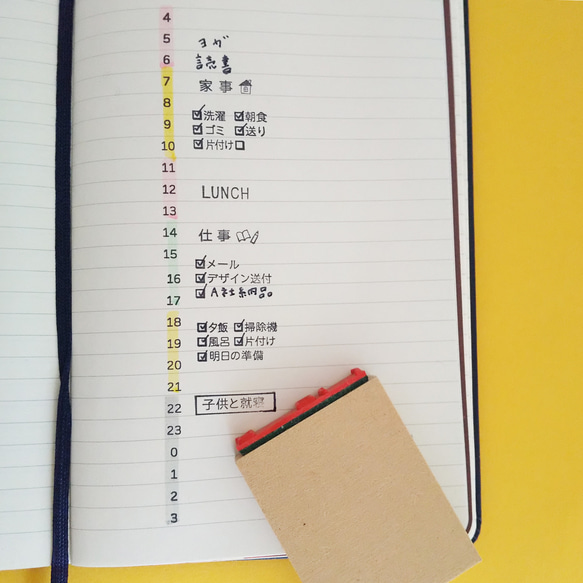 4
5 ヨガ
6 読書
7 家事
8
9 洗濯 朝食
ゴミ 送り
10 片付け
11
12 LUNCH
13
14 仕事
15
メール
16 デザイン送付
17 A社納品
18 夕飯 掃除機
19 風呂 片付け
20 明日の準備
21
22 子供と就寝
23
0
1
2
3